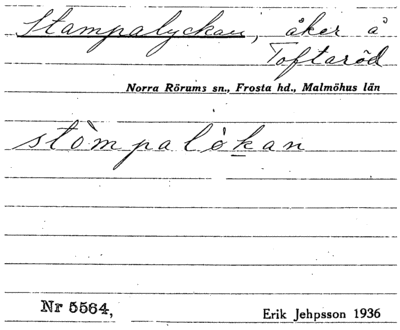 Stampalyckan, åker å
Toftaröd
Norra Rörums sn., Frosta hd., Malmöhus län
stòmpalòkan
Nr 5564,
Erik Jehpsson 1936